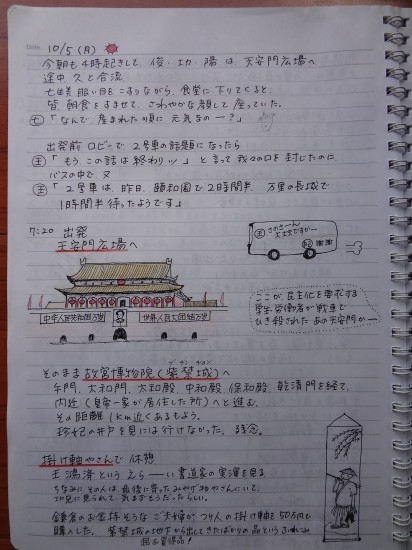 Date 10/5 (月)
今朝も4時起きして、俊・功・陽は、天安門広場へ
途中、久と合流
七時、眠い目をこすりながら、食堂に下りてくると、
皆 朝食をすませて、さわやかな顔して座っていた。
七「なんで、産まれた順に 元気なのー?」
出発前 ロビーで 2号車の話題になったら
王「もう、この話は終わりッ」と言って我々の口を封じたのに
バスの中で 又
王「2号車は、昨日、頤和園で2時間半、万里の長城で
1時間半 待ったようです」
7:20 出発
天安門広場へ
謝謝
中华人民共和国万岁
世界人民大团结万岁
ここが、民主化を要求する
学生、労働者が戦車で
ひき殺された あの天安門かー
そのまま 故宮博物院(紫禁城)へ
午門、太和門、太和殿、中和殿、保和殿、乾清門を経て、
内廷(皇帝一家が居住した所)へと進む。
その距離 1km近くあるもよう。
珍妃の井戸を見には行けなかった。残念。
掛け軸やさんで 休憩
王 鴻 という えらーい書道家の実演を見る
ちなみに、その人は、最後に寄ったみやげ物やさんにいて、
功兄に見られて、気まずそうだったらしい。
鎌倉のお金持そうな ご夫婦が つり人の掛け軸を50万円で
購入した。紫禁城の地下から出してきたばかりの品というふれこみ
超お買得品!